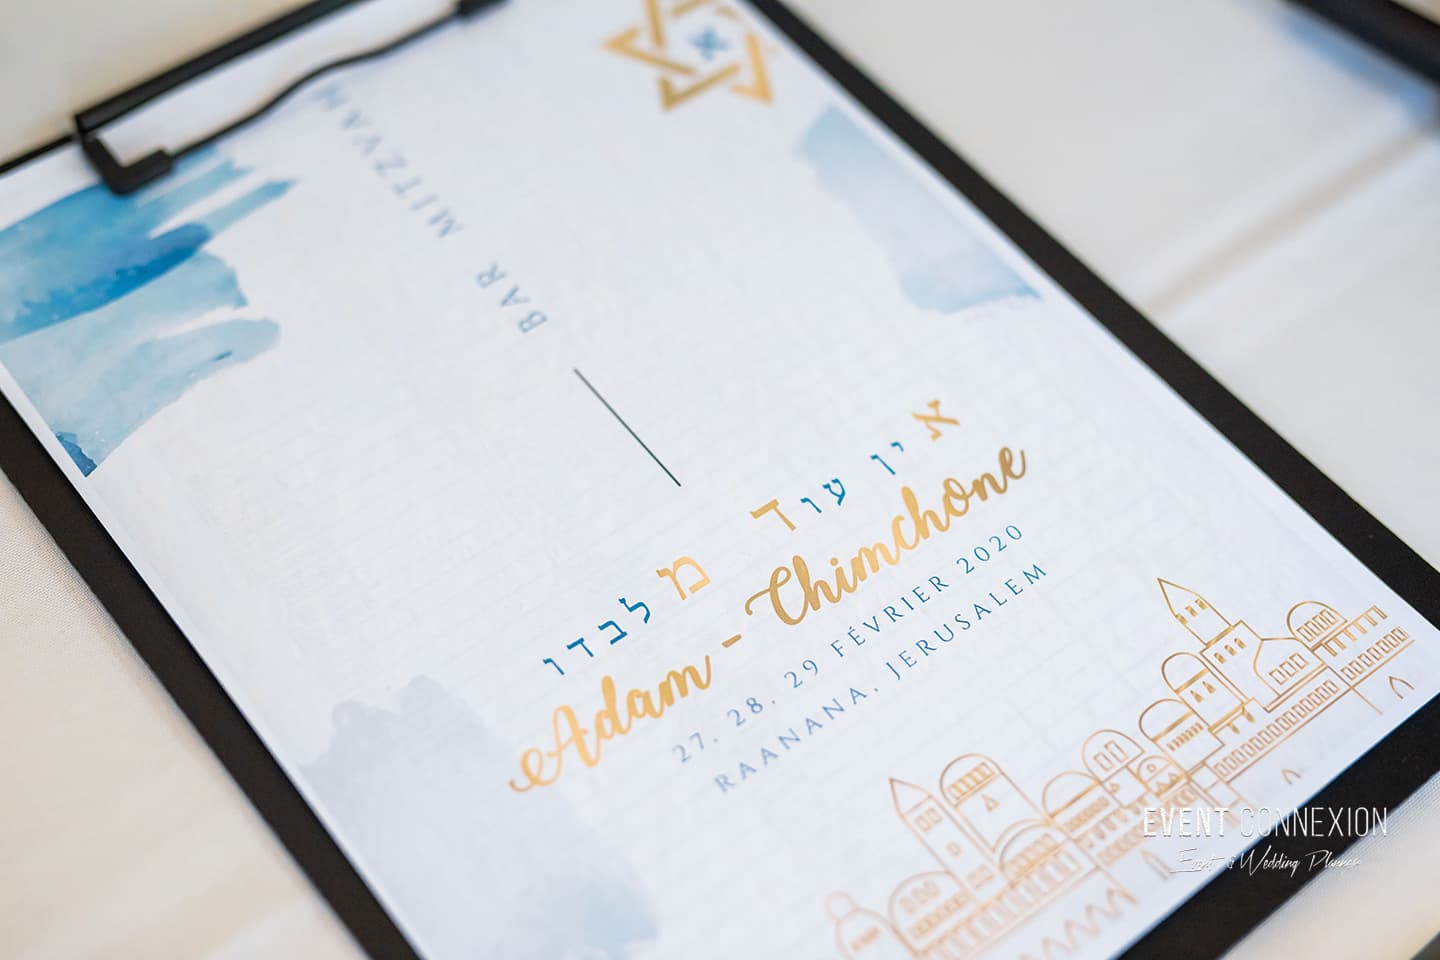 א
BAR MITZVAH
אין עוד מלבדו
Adam - Chimchone
27. 28. 29 FÉVRIER 2020
RAANANA, JERUSALEM
EVENT CONNEXION
Event & Wedding Planner